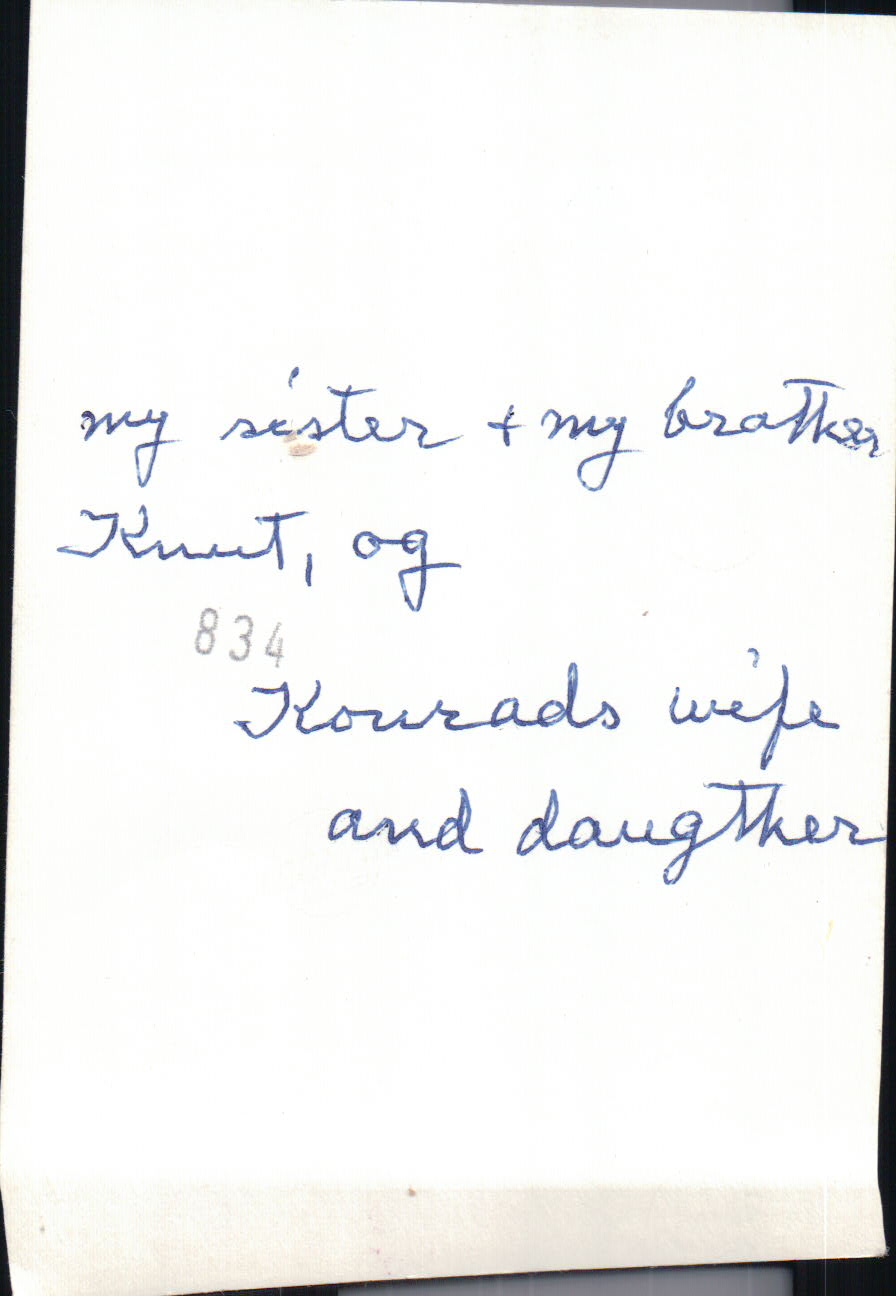 my sister + my brother
Knut, og
834
Konrads wife
and daugther